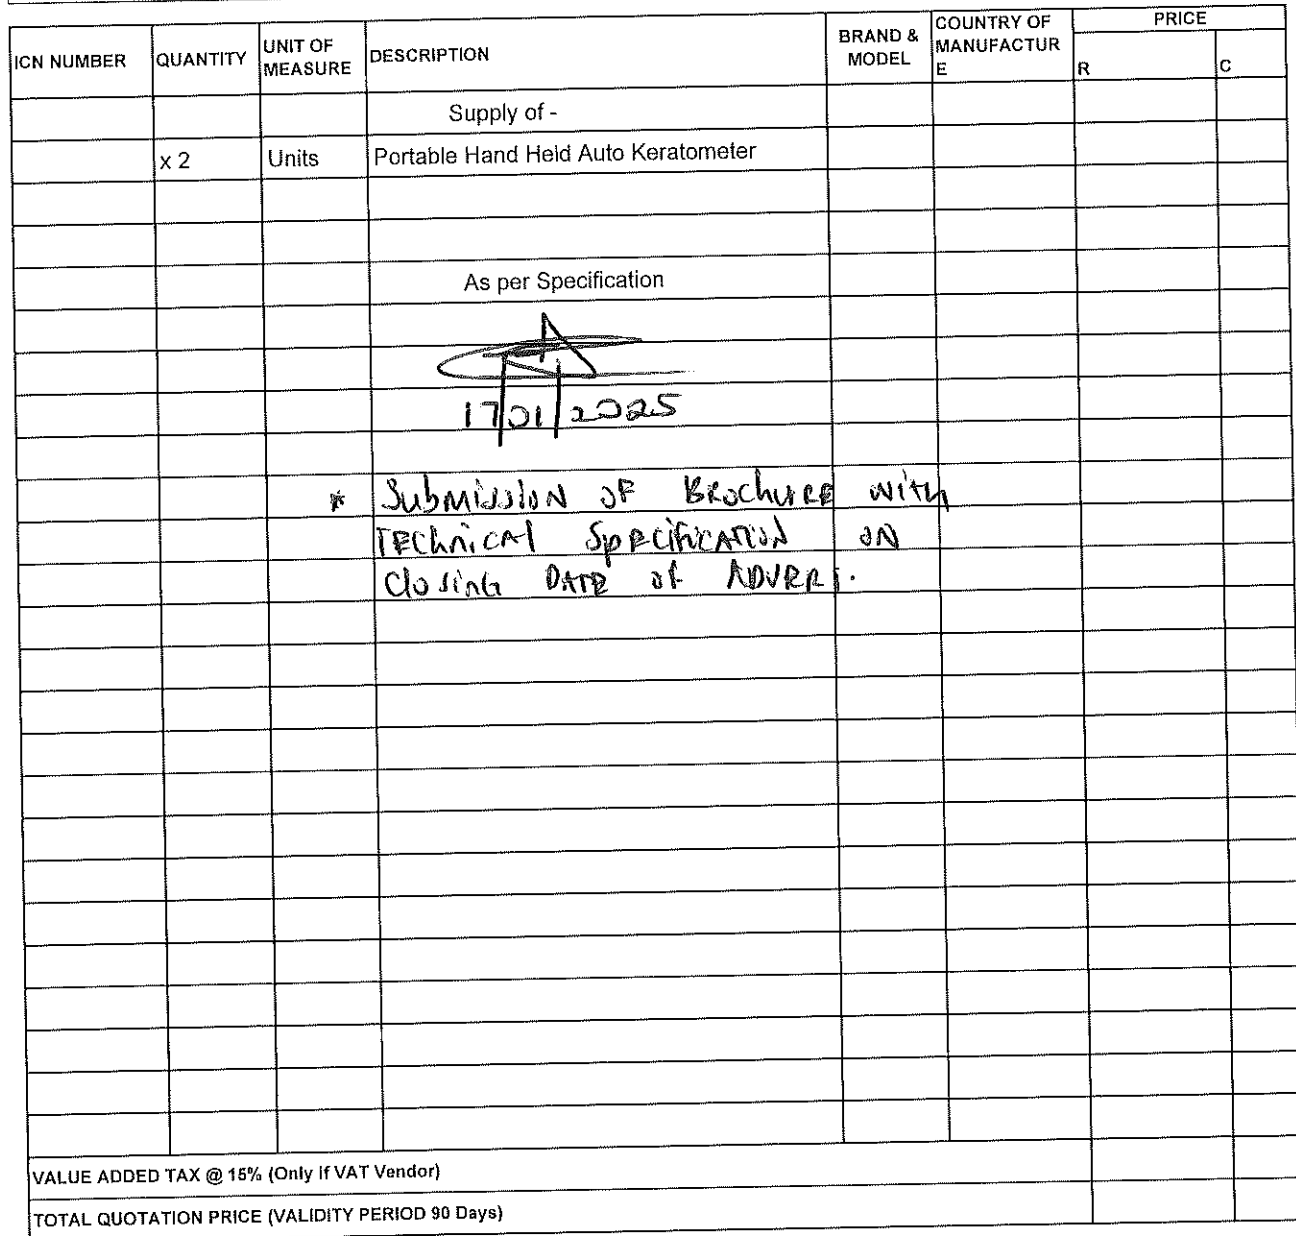 ICN NUMBER QUANTITY UNIT OF MEASURE DESCRIPTION BRAND & MODEL COUNTRY OF MANUFACTUR E PRICE R C
Supply of -
x 2 Units Portable Hand Held Auto Keratometer
As per Specification
17/01/2025
* Submission OF BRochuRE with
TEChnicAl SpECificATioN ON
Closing DATE of ADVERT.
VALUE ADDED TAX @ 15% (Only if VAT Vendor)
TOTAL QUOTATION PRICE (VALIDITY PERIOD 90 Days)